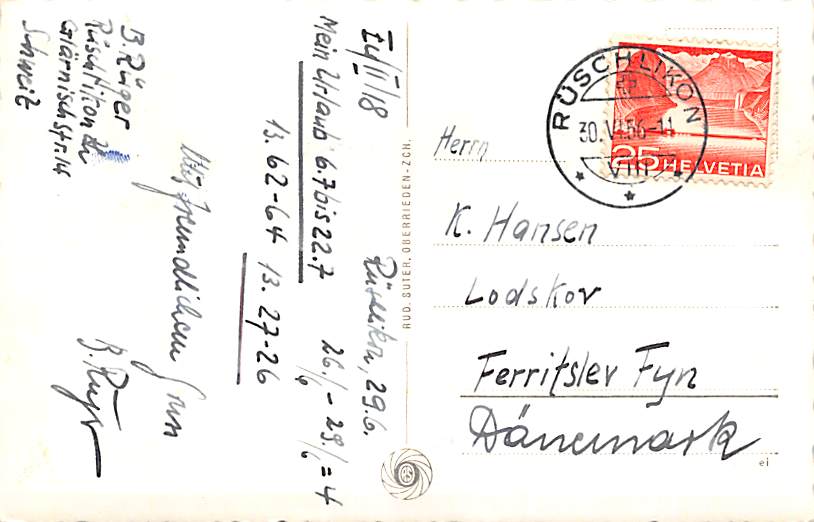 Rüschlikon, 29.6.
I4/II/18
Mein Urlaub 6.7 bis 22.7 26./6 - 29./6 = 4
13. 62-64 13. 27-26
Mit freundlichem Gruss
B. Rüger
B. Rüger
Rüschlikon Zh
Glärnischstr. 14
Schweiz
RUD. SUTER, OBERRIEDEN-ZCH.
RÜSCHLIKON
30.VI.56-11
VIII
25 HELVETIA
Herrn
K. Hansen
Lodskov
Ferritslev Fyn
Dänemark
ei